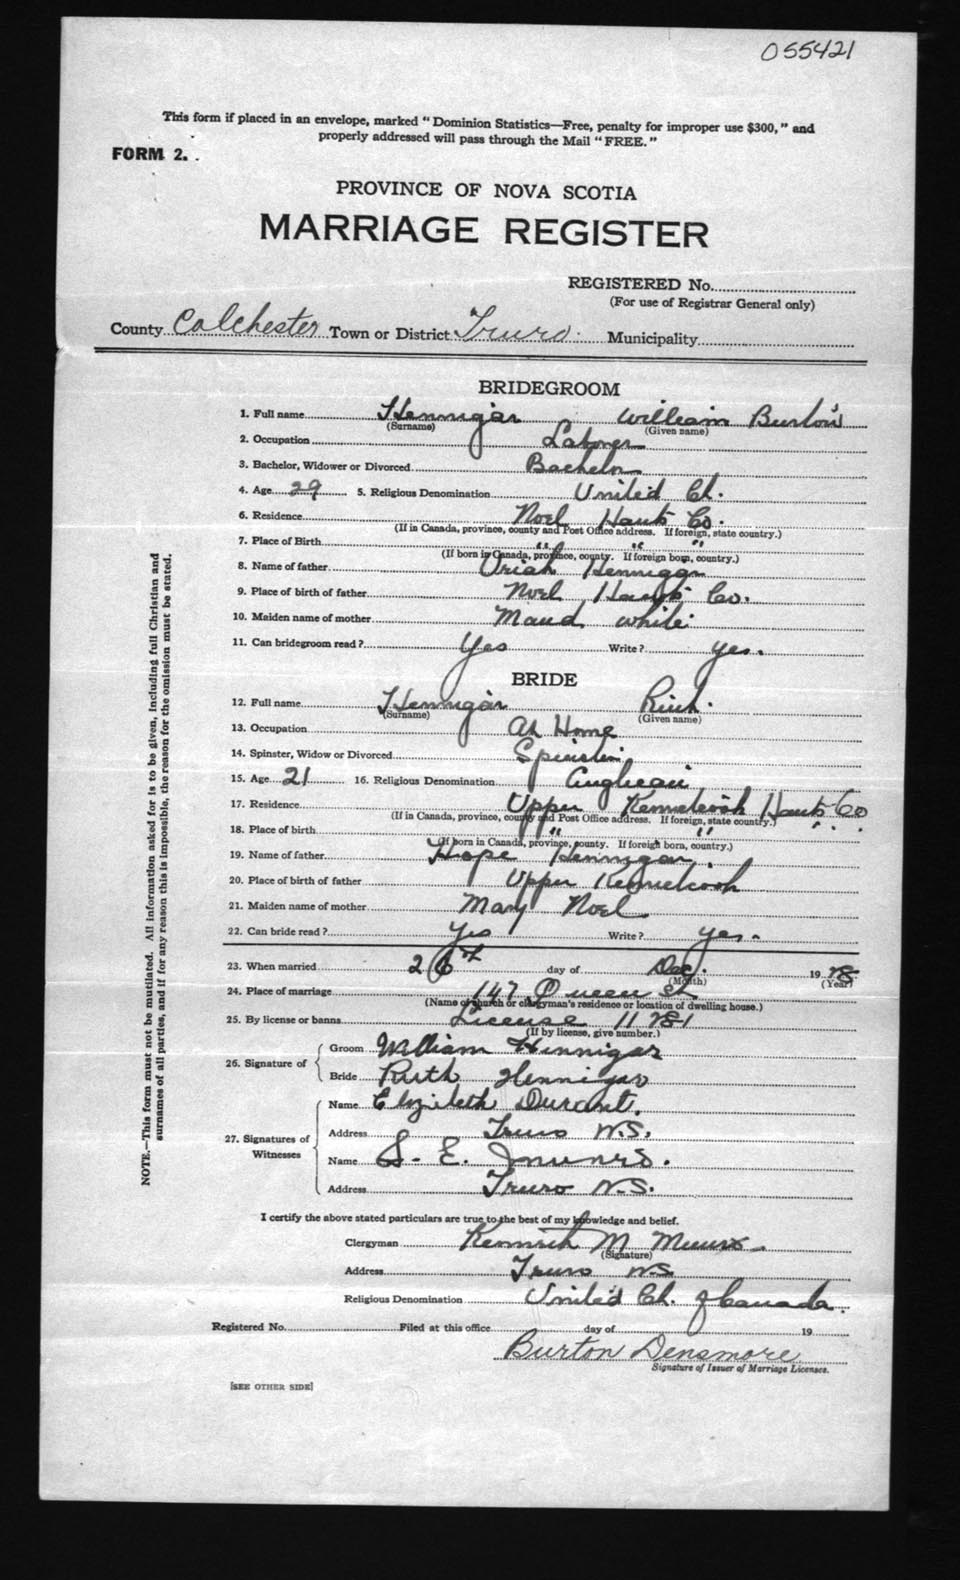 055421
This form if placed in an envelope, marked "Dominion Statistics—Free, penalty for improper use $300," and
properly addressed will pass through the Mail "FREE."
FORM 2.
PROVINCE OF NOVA SCOTIA
MARRIAGE REGISTER
REGISTERED No.
(For use of Registrar General only)
County Colchester Town or District Truro Municipality
BRIDEGROOM
1. Full name Hennigar William Burton
(Surname) (Given name)
2. Occupation Laborer
3. Bachelor, Widower or Divorced Bachelor
4. Age 29 5. Religious Denomination United Ch.
6. Residence Noel Hants Co.
(If in Canada, province, county and Post Office address. If foreign, state country.)
7. Place of Birth " " "
(If born in Canada, province, county. If foreign born, country.)
8. Name of father Uriah Hennigar
9. Place of birth of father Noel Hants Co.
10. Maiden name of mother Maud White
11. Can bridegroom read? Yes Write? yes.
BRIDE
12. Full name Hennigar Ruth
(Surname) (Given name)
13. Occupation At Home
14. Spinster, Widow or Divorced Spinster
15. Age 21 16. Religious Denomination Anglican
17. Residence Upper Kennetcook Hants Co
(If in Canada, province, county and Post Office address. If foreign, state country.)
18. Place of birth " " " "
(If born in Canada, province, county. If foreign born, country.)
19. Name of father Hope Hennigar
20. Place of birth of father Upper Kennetcook
21. Maiden name of mother Mary Noel
22. Can bride read? Yes Write? yes.
23. When married 26th day of Dec. 19
(Month) (Year)
24. Place of marriage 147 Queen St
(Name of church or clergyman's residence or location of dwelling house.)
25. By license or banns License
(If by license, give number.)
26. Signature of
Groom William Hennigar
Bride Ruth Hennigar
27. Signatures of
Witnesses
Name Elizabeth Durant.
Address Truro N.S.
Name S. E. Munro.
Address Truro N.S.
I certify the above stated particulars are true to the best of my knowledge and belief.
Clergyman Kenneth M
(Signature)
Address Truro N.S.
Religious Denomination United Ch. of Canada.
Registered No. Filed at this office day of 19
Burton Densmore
Signature of Issuer of Marriage Licenses.
[SEE OTHER SIDE]
NOTE.—This form must not be mutilated. All information asked for is to be given, including full Christian and
surnames of all parties, and if for any reason this is impossible, the reason for the omission must be stated.